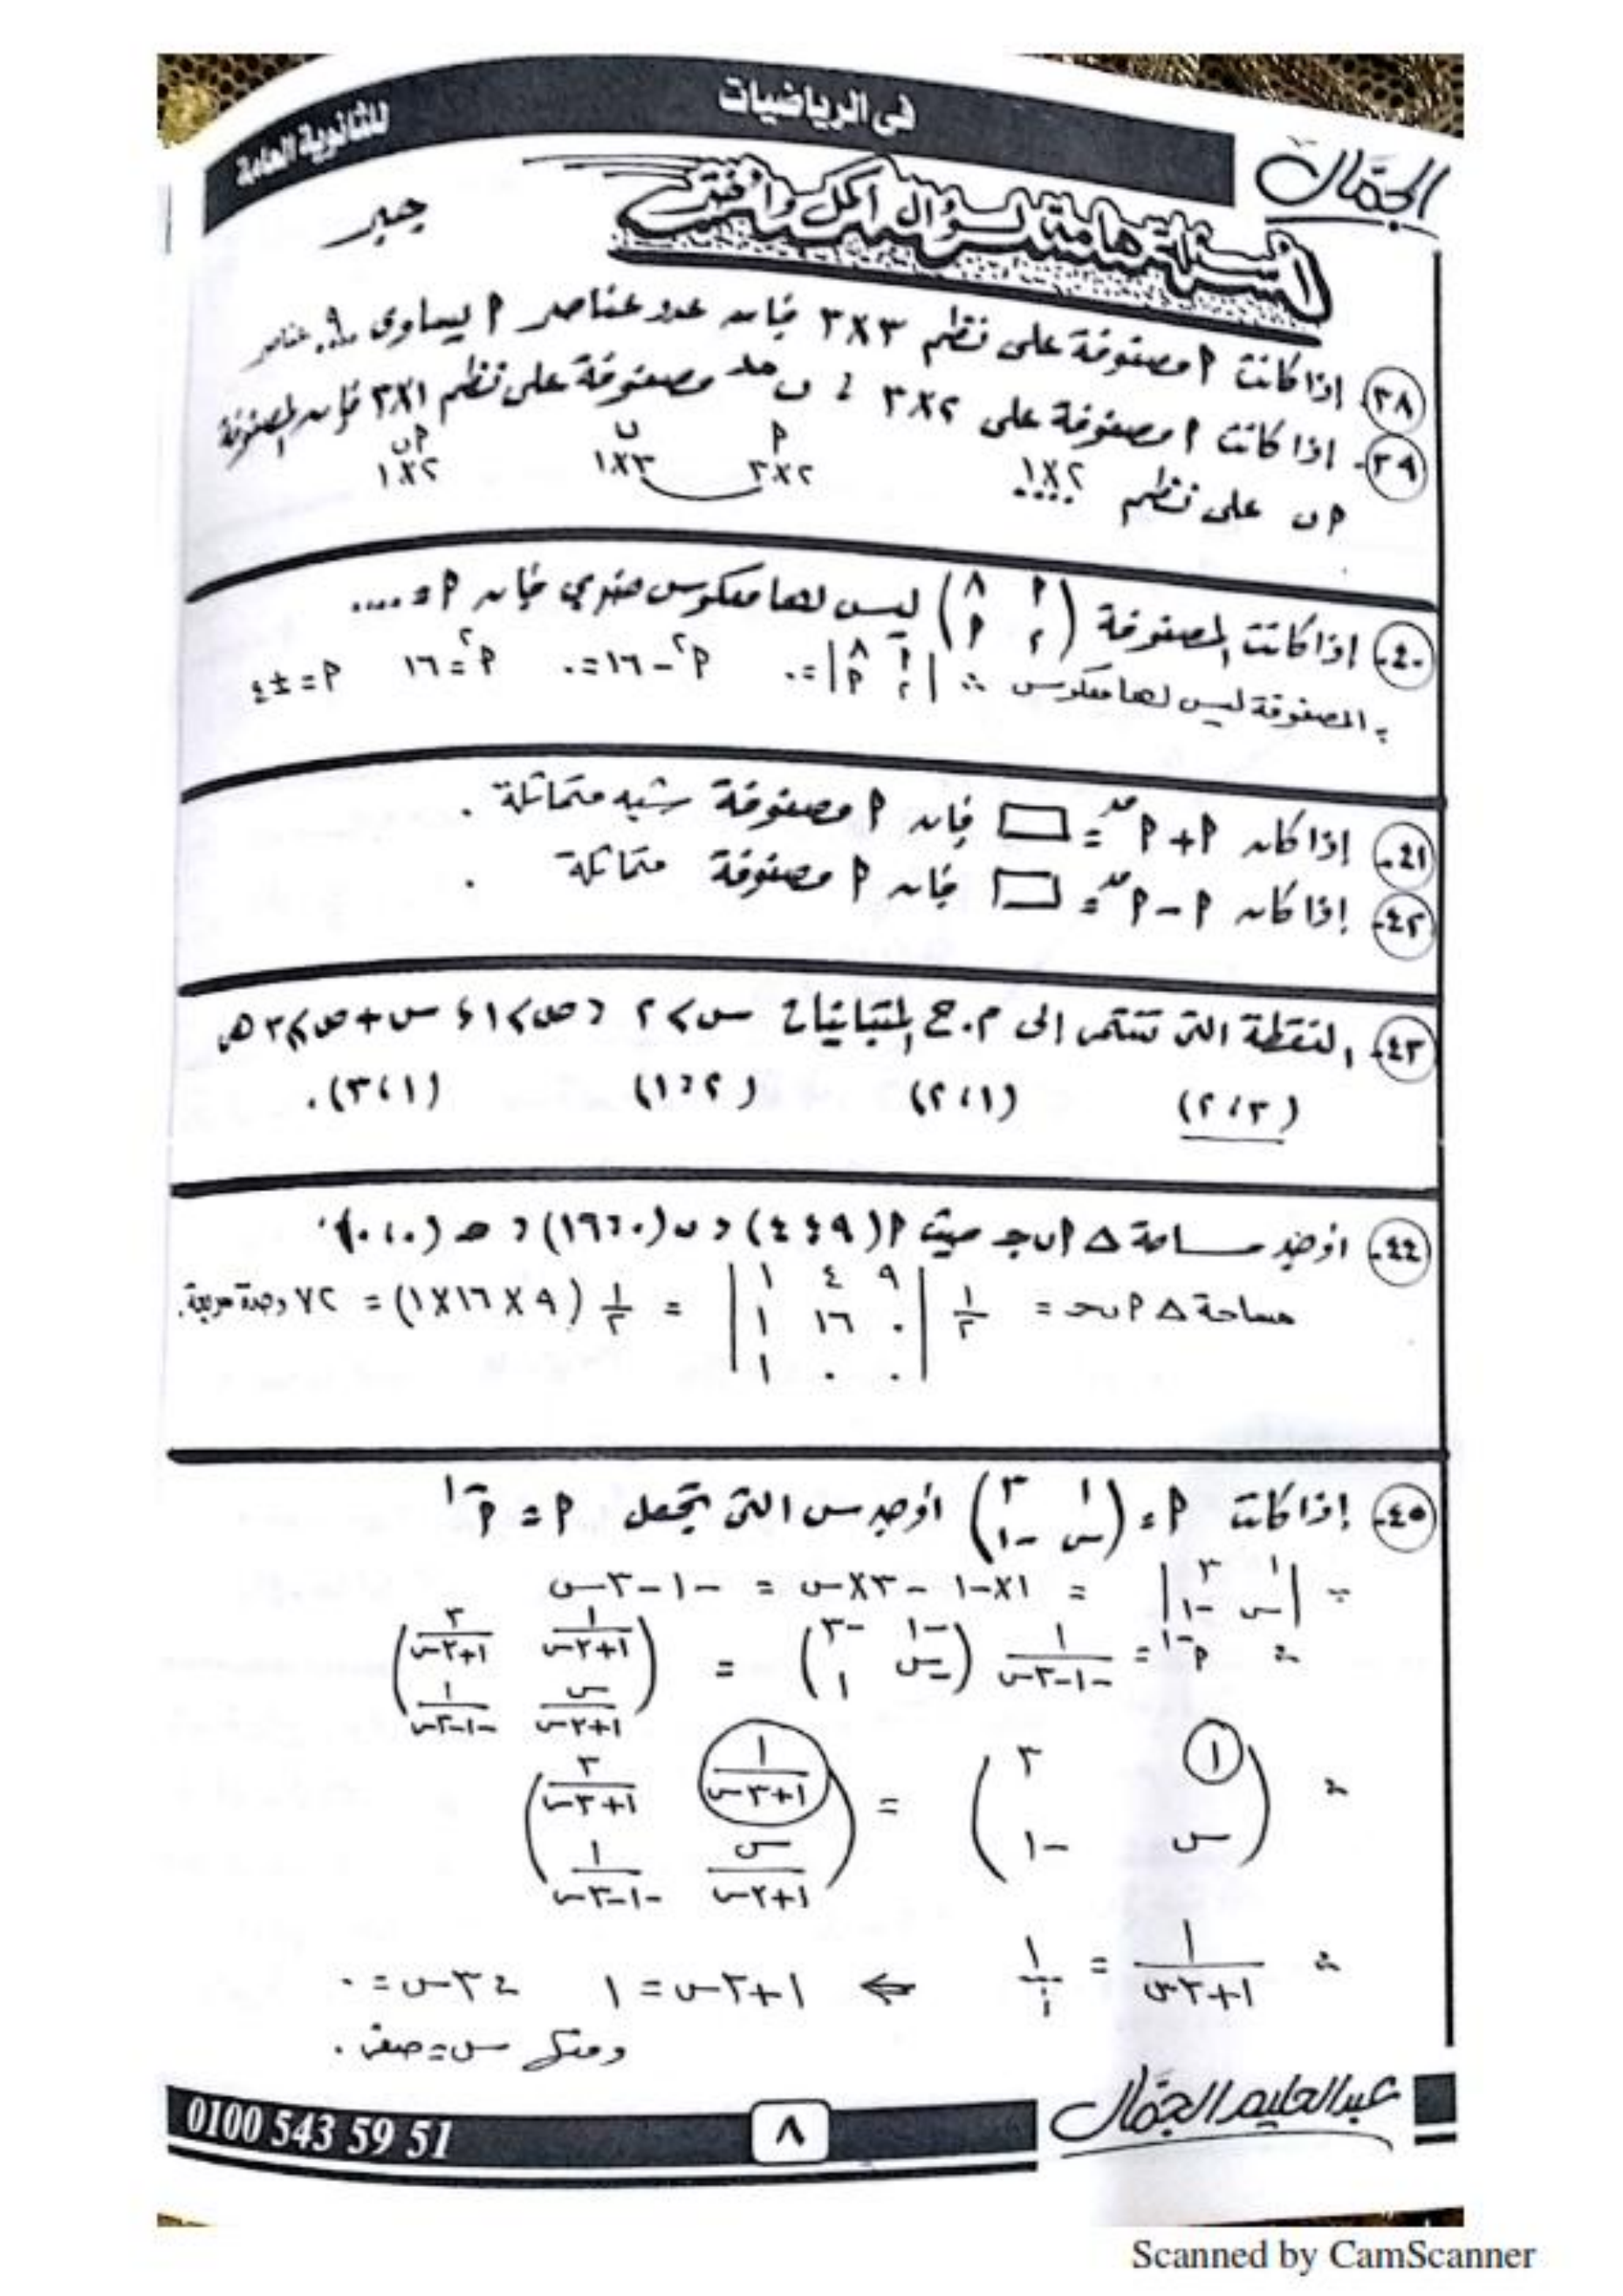 الجمّال
فى الرياضيات
للثانوية العامة
جبر
أسئلة هامة لسؤال أكمل وأختر
٣٨- إذا كانت أ مصفوفة على نظم ٣×٣ فإن عدد عناصر أ يساوى ..٩.. عناصر
٣٩- إذا كانت أ مصفوفة على ٢×٣ ، ب مصفوفة على نظم ٣×١ فإن المصفوفة
أب على نظم ٢×١
أ ب أب
٢×٣ ٣×١ ٢×١
٤٠- إذا كانت المصفوفة (أ ٨ ٢ أ) ليس لها معكوس ضربي فإن أ = ....
∵ المصفوفة ليس لها معكوس ∴ |أ ٨ ٢ أ| = ٠ أ² - ١٦ = ٠ أ² = ١٦ أ = ± ٤
٤١- إذا كان أ + أمد = □ فإن أ مصفوفة شبه متماثلة .
٤٢- إذا كان أ - أمد = □ فإن أ مصفوفة متماثلة .
٤٣- النقطة التى تنتمى إلى م.ح المتباينات س > ٢ ، ص > ١ ، س + ص ≥ ٣ هى
(٣ ، ٢) (١ ، ٢) (٢ ، ١) (١ ، ٣) .
٤٤- أوجد مساحة Δ أ ب ج حيث أ (٩ ، ٤) ، ب (٠ ، ١٦) ، ج (٠ ، ٠) .
مساحة Δ أ ب ج = ١/٢ |٩ ٤ ١ ٠ ١٦ ١ ٠ ٠ ١| = ١/٢ (٩ × ١٦ × ١) = ٧٢ وحدة مربعة.
٤٥- إذا كانت أ = (١ ٣ س -١) أوجد س التى تجعل أ = أ⁻¹
∵ |١ ٣ س -١| = ١ × -١ - ٣ × س = -١ - ٣س
∴ أ⁻¹ = ١/(-١-٣س) (-١ -٣ -س ١) = (١/(١+٣س) ٣/(١+٣س) س/(١+٣س) ١/(-١-٣س))
∴ (١ ٣ س -١) = (١/(١+٣س) ٣/(١+٣س) س/(١+٣س) ١/(-١-٣س))
∴ ١/(١+٣س) = ١/١ ⇐ ١+٣س = ١ ∴ ٣س = ٠
ومنها س = صفر .
عبدالحليم الجمّال
٨
0100 543 59 51
Scanned by CamScanner